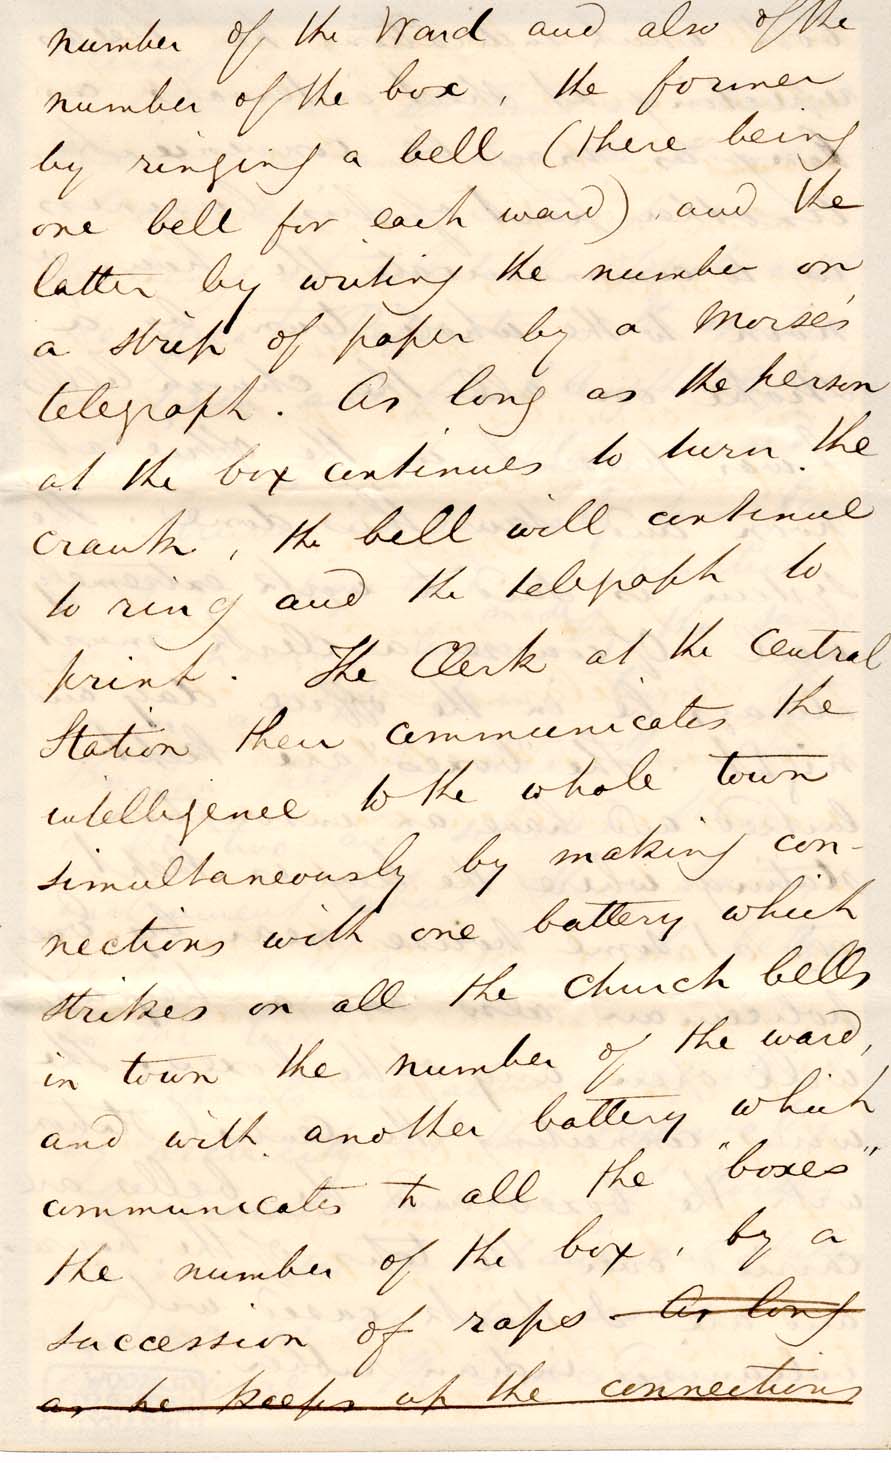 number of the Ward and also of the
number of the box, the former
by ringing a bell (there being
one bell for each ward) and the
latter by writing the number on
a strip of paper by a Morse's
telegraph. As long as the person
at the box continues to turn the
crank, the bell will continue
to ring and the telegraph to
print. The Clerk at the Central
Station then communicates the
intelligence to the whole town
simultaneously by making con-
nections with one battery which
strikes on all the church bells
in town the number of the ward,
and with another battery which
communicates to all the "boxes"
the number of the box, by a
succession of raps. As long
as he keeps up the connections